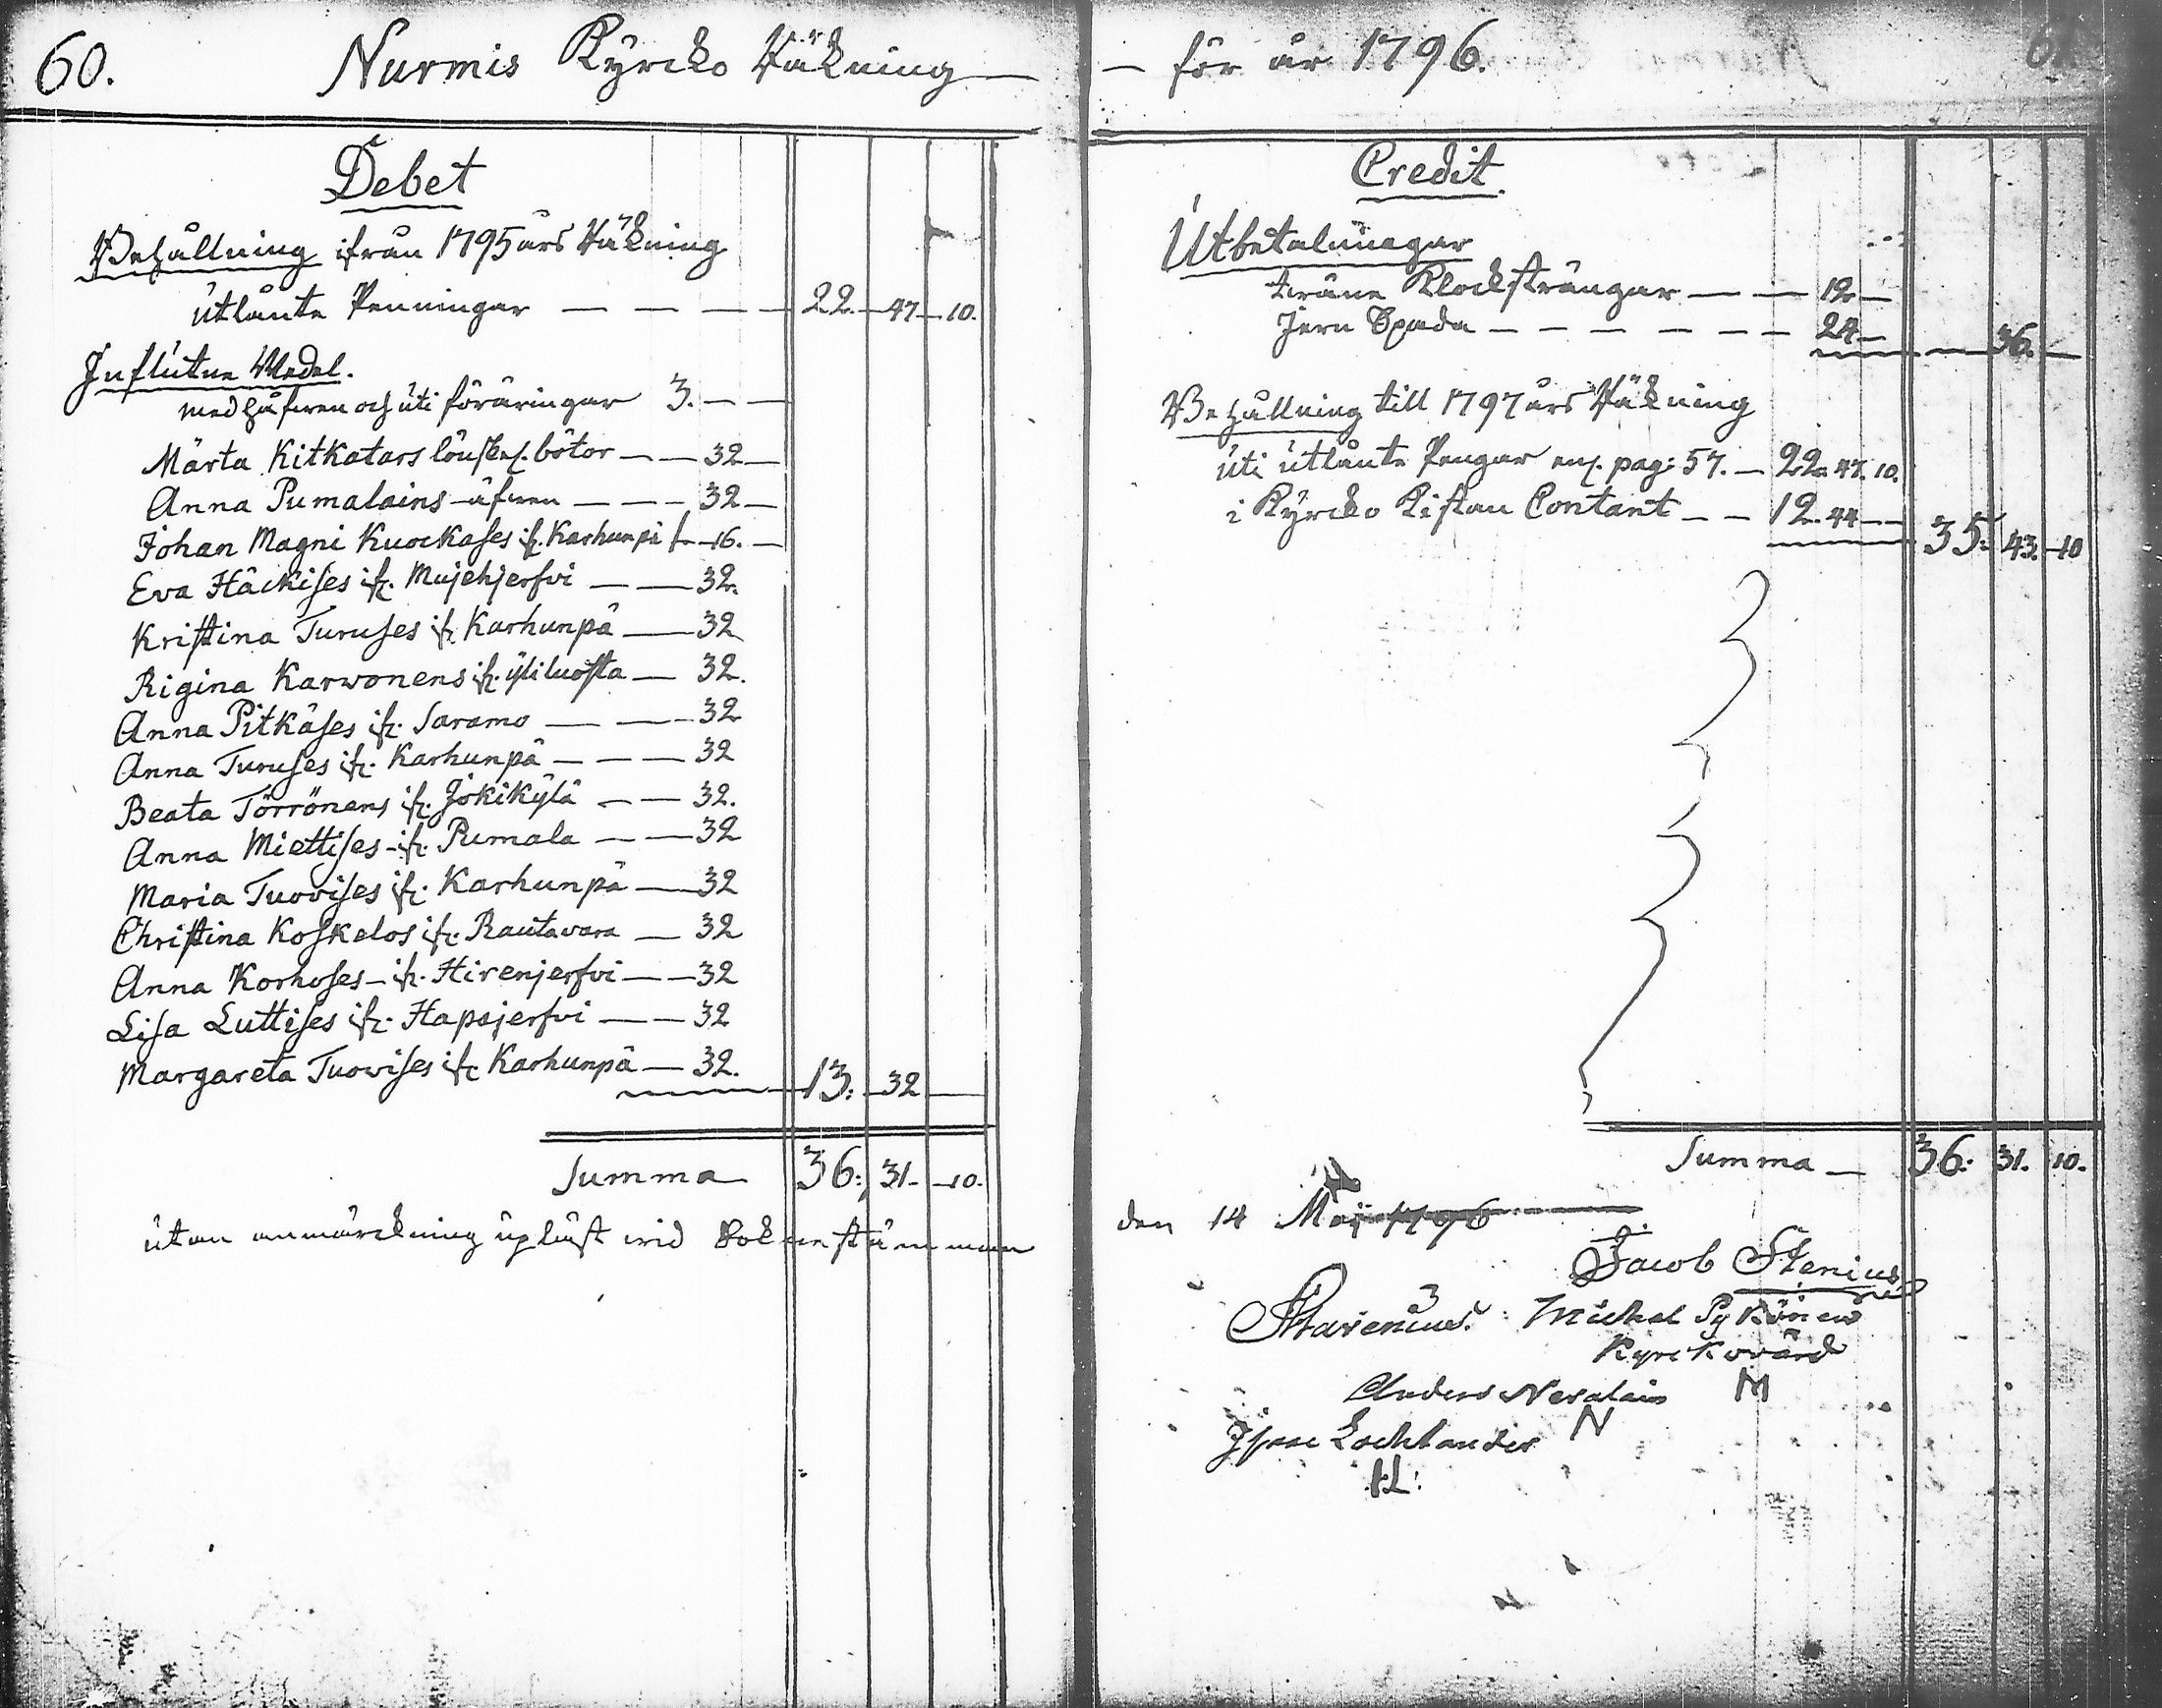 60. Nurmis Kyrcko Räkning —
Debet
Behållning ifrån 1795 års Räkning
utlånte Penningar — — — — 22. — 47 — 10.
Influtne Medel.
med håfwen och uti föräringar 3. — —
Märta Kitkatars löuskeₓ. böter — — 32 —
Anna Pumalains — äfwen — — — 32 —
Johan Magni Kuockases if. Karhunpä — 16. —
Eva Häckises ifr. Mujehjerfvi — — 32.
Kristina Turuses ifr Karhunpä — 32
Rigina Karwonens ifr. yliluosta — 32.
Anna Pitkäses ifr. Saramo — — — 32
Anna Turuses ifr. Karhunpä — — — 32
Beata Törrönens ifr. Jokikylä — — 32.
Anna Miettises — ifr. Pumala — — 32
Maria Tuovises ifr. Karhunpä — 32
Christina Koskelos ifr. Rautavara — 32
Anna Korhoses — ifr. Hirenjerfvi — — 32
Lisa Luttises ifr. Hapajerfvi — — 32
Margareta Tuowises ifr Karhunpä — 32. 13: — 32 —
Summa 36: 31 — 10.
utan anmärckning upläst wid Sokenstämman
— för år 1796. 61
Credit.
Utbetalningar
Klocksträngar — — 12 —
Jern Spada — — — — — — 24 — 36. —
Behållning till 1797 års Räkning
uti utlånte Pengar enl. pag: 57. — 22. 47. 10.
i Kyrcko Kistan Contant — — 12. 44 — — 35: 43. — 10
Summa — 36: 31. 10.
den 14 Maj 1796
Jacob Stenius
Michel Pykönen
Kyrckowärd
Anders Nevalain M
Isaac Lochlander N
IL: